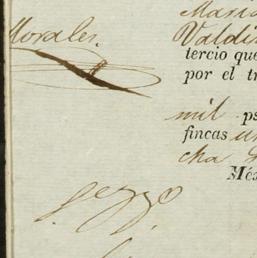 Morales.
Maria
Valdi
tercio que
por el tr
mil ps
fincas un
cha
Méx